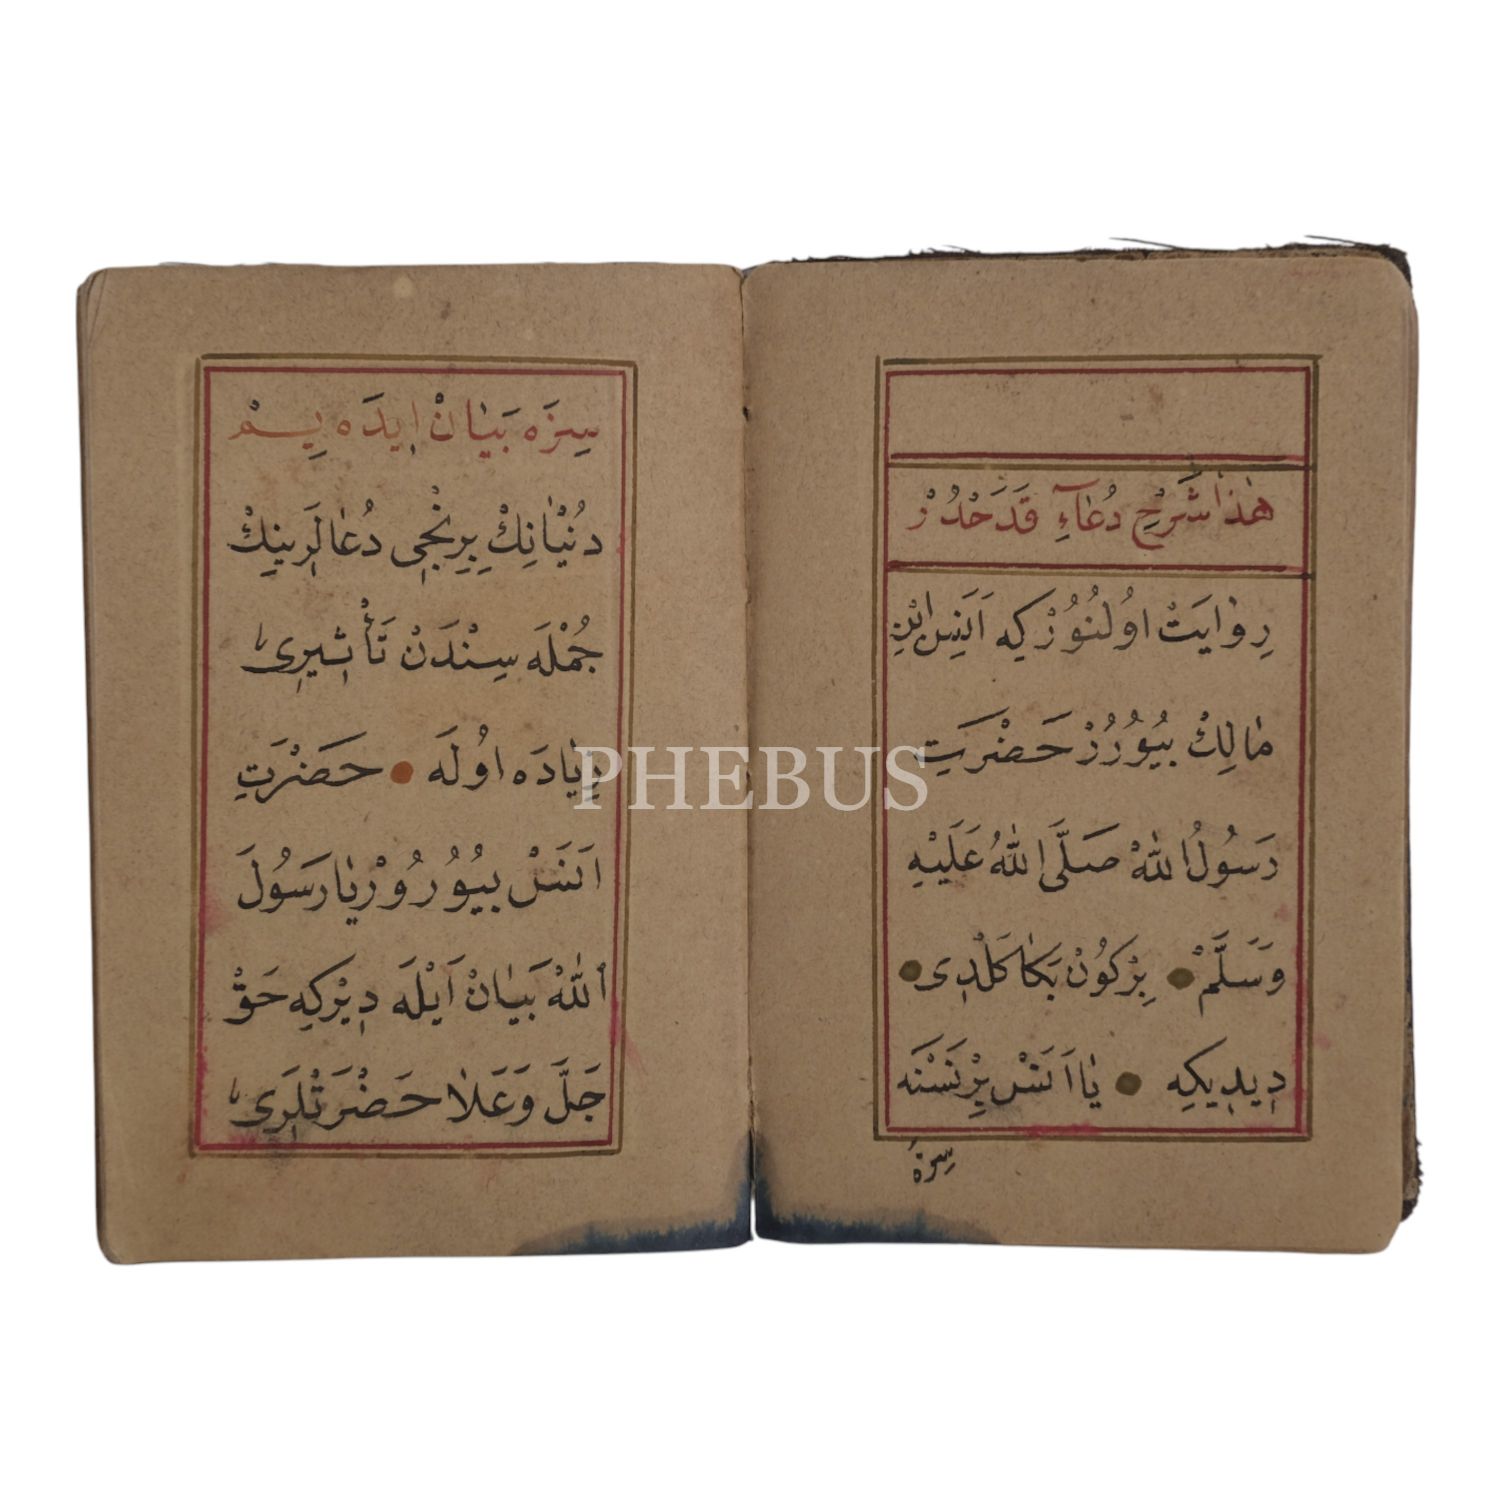 هٰذَا شَرْحِ دُعَاۤءِ قَدَحْدُرْ
رِوٰايَتْ اوُلُنُورْكِه اَنَسِ ابْنِ
مٰالِكْ بُيُورُرْ حَضْرَتِ
رَسُولُ اللّٰهْ صَلَّى اللّٰهُ عَلَيْهِ
وَسَلَّمْ • بِرْكُونْ بَكَا كَلْدِى •
دِيدِيكِه • يٰا اَنَسْ بِرْنَسْنَه
سِزَه
سِزَه بَيٰانْ اِيدَه يِمْ
دُنْيٰانِكْ بِرِنْجِى دُعٰالَرِينِكْ
جُمْلَه سِنْدَنْ تَأْثِيرِى
زِيٰادَه اوُلَه • حَضْرَتِ
اَنَسْ بُيُورُورْ يٰا رَسُولَ
اللّٰهْ بَيٰانْ اَيْلَه دِيْرْكِه حَقْ
جَلَّ وَعَلٰا حَضْرَتْلَرِى
PHEBUS